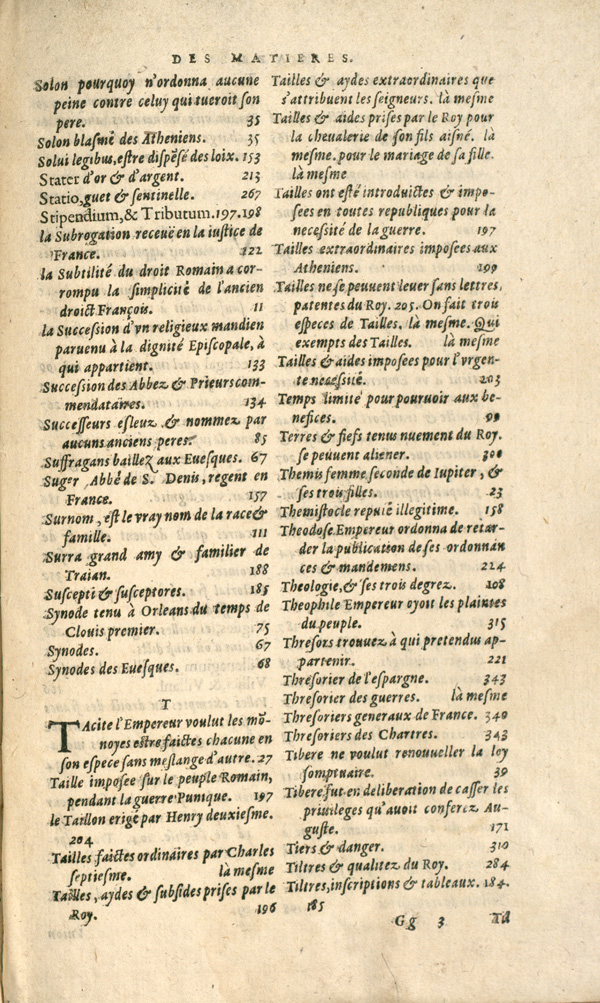 DES MATIERES.
Solon pourquoy n'ordonna aucune
peine contre celuy qui tueroit ſon
pere. 35
Solon blaſmé des Atheniens. 35
Solui legibus, eſtre diſpẽſé des loix. 153
Stater d'or & d'argent. 213
Statio, guet & ſentinelle. 267
Stipendium, & Tributum. 197. 198
la Subrogation receuë en la iuſtice de
France. 122
la Subtilité du droit Romain a cor-
rompu la ſimplicité de l'ancien
droict François. 11
la Succeſsion d'vn religieux mandien
paruenu à la dignité Epiſcopale, à
qui appartient. 133
Succeſsion des Abbez & Prieurs com-
mendataires. 134
Succeſſeurs eſleuz & nommez par
aucuns anciens peres. 85
Suffragans baillez aux Eueſques. 67
Suger Abbé de S. Denis, regent en
France. 157
Surnom, eſt le vray nom de la race &
famille. 111
Surra grand amy & familier de
Traian. 188
Suſcepti & ſuſceptores. 185
Synode tenu à Orleans du temps de
Clouis premier. 75
Synodes. 67
Synodes des Eueſques. 68
T
TAcite l'Empereur voulut les mõ-
noyes estre faictes chacune en
ſon eſpece ſans meſlange d'autre. 27
Taille impoſee ſur le peuple Romain,
pendant la guerre Punique. 197
le Taillon erigé par Henry deuxieſme.
204
Tailles faictes ordinaires par Charles
ſeptieſme. là meſme
Tailles, aydes & ſubſides priſes par le
Roy. 196
Tailles & aydes extraordinaires que
s'attribuent les ſeigneurs. là meſme
Tailles & aides priſes par le Roy pour
la cheualerie de ſon fils aiſné. là
meſme. pour le mariage de ſa fille.
là meſme
Tailles ont eſté introduictes & impo-
ſees en toutes republiques pour la
neceſsité de la guerre. 197
Tailles extraordinaires impoſees aux
Atheniens. 199
Tailles ne ſe peuuent leuer ſans lettres
patentes du Roy. 205. On fait trois
eſpeces de Tailles. là meſme. Qui
exempts des Tailles. là meſme
Tailles & aides impoſees pour l'vrgen-
te neceſsité. 203
Temps limité pour pouruoir aux be-
nefices. 99
Terres & fiefs tenus nuement du Roy.
ſe peuuent aliener. 300
Themis femme ſeconde de Iupiter, &
ſes trois filles. 23
Themiſtocle reputé illegitime. 158
Theodoſe Empereur ordonna de retar-
der la publication de ſes ordonnan
ces & mandemens. 224
Theologie, & ſes trois degrez. 108
Theophile Empereur oyoit les plaintes
du peuple. 315
Threſors trouuez à qui pretendus ap-
partenir. 221
Threſorier de l'eſpargne. 343
Threſorier des guerres. là meſme
Threſoriers generaux de France. 340
Threſoriers des Chartres. 343
Tibere ne voulut renouueller la loy
ſomptuaire. 39
Tibere fut en deliberation de caſſer les
priuileges qu'auoit conferez Au-
guſte. 171
Tiers & danger. 310
Tiltres & qualitez du Roy. 284
Tiltres, inſcriptions & tableaux. 184.
185
Gg 3 Til